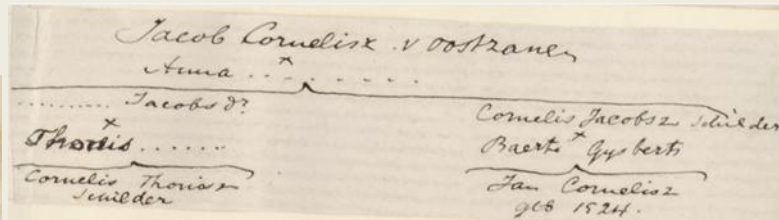 Jacob Cornelisz. v oostzanen
Anna ..x.......
......... Jacobs dr.
x
Thonis.......
Cornelis Thonisz
Schilder
Cornelis Jacobsz Schilder
x
Baerte Gysberts
Jan Cornelisz
geb 1524.